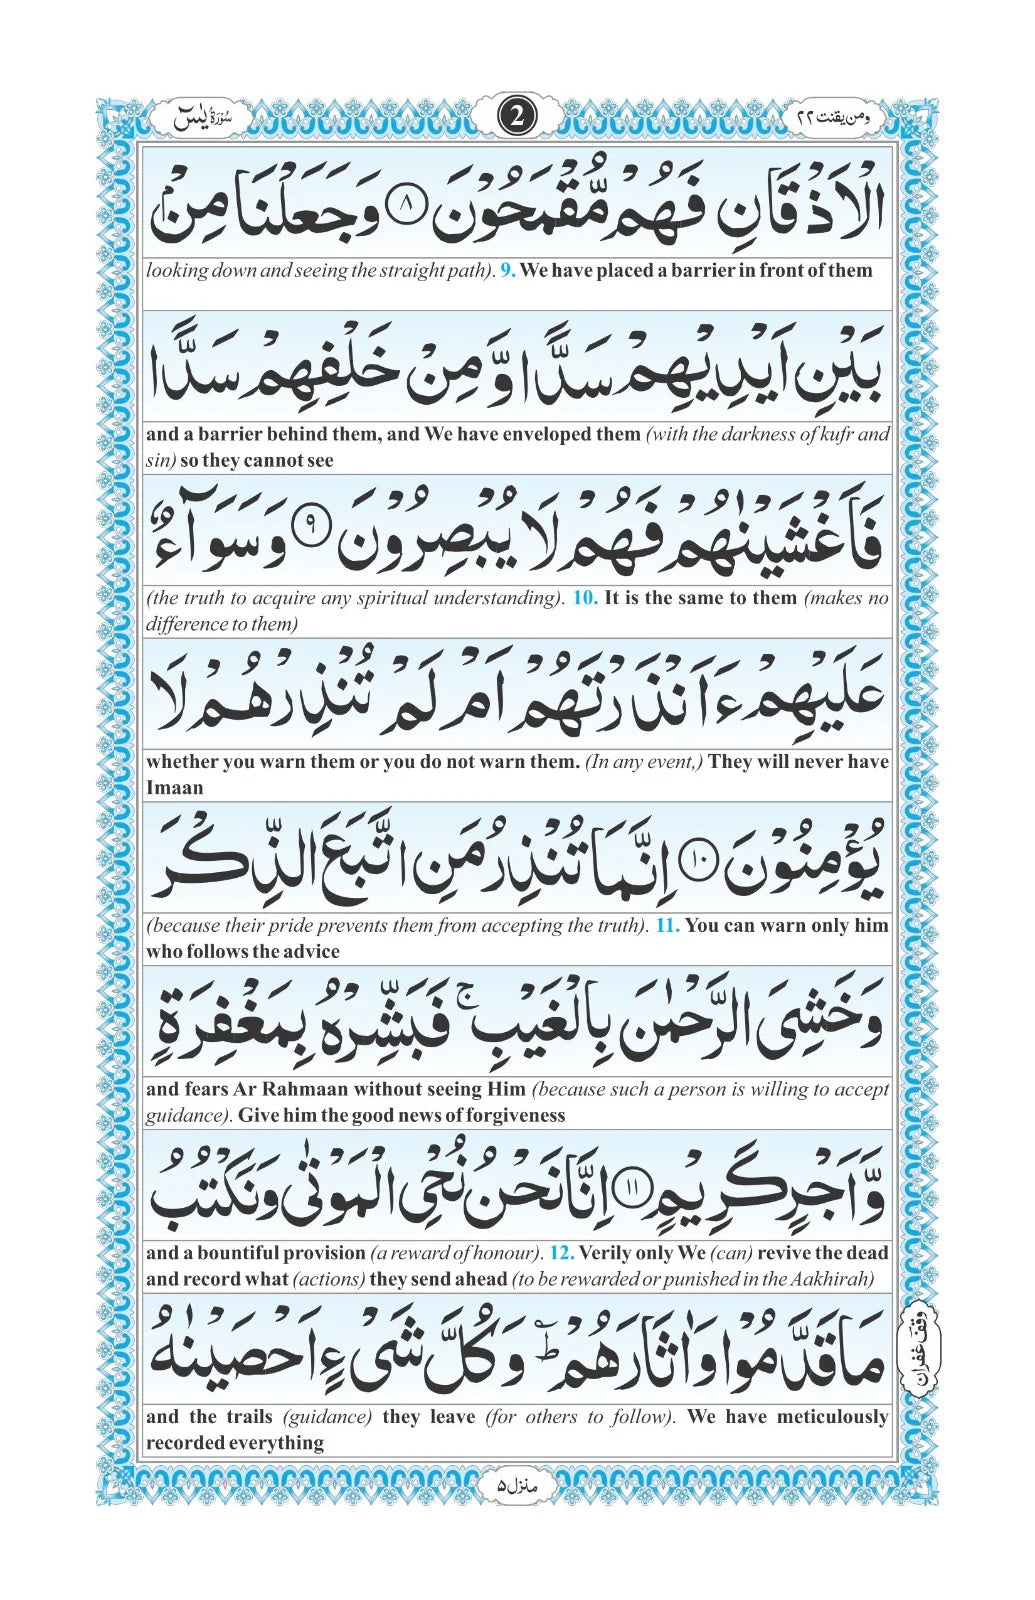 سُوْرَةُ يٰسٓ
2
ومن يقنت ٢٢
الْاَذْقَانِ فَهُمْ مُّقْمَحُوْنَ ٨ وَجَعَلْنَا مِنْۢ
looking down and seeing the straight path). 9. We have placed a barrier in front of them
بَيْنِ اَيْدِيْهِمْ سَدًّا وَّ مِنْ خَلْفِهِمْ سَدًّا
and a barrier behind them, and We have enveloped them (with the darkness of kufr and
sin) so they cannot see
فَاَغْشَيْنٰهُمْ فَهُمْ لَا يُبْصِرُوْنَ ٩ وَ سَوَآءٌ
(the truth to acquire any spiritual understanding). 10. It is the same to them (makes no
difference to them)
عَلَيْهِمْ ءَاَنْذَرْتَهُمْ اَمْ لَمْ تُنْذِرْهُمْ لَا
whether you warn them or you do not warn them. (In any event,) They will never have
Imaan
يُؤْمِنُوْنَ ١٠ اِنَّمَا تُنْذِرُ مَنِ اتَّبَعَ الذِّكْرَ
(because their pride prevents them from accepting the truth). 11. You can warn only him
who follows the advice
وَخَشِىَ الرَّحْمٰنَ بِالْغَيْبِ ۚ فَبَشِّرْهُ بِمَغْفِرَةٍ
and fears Ar Rahmaan without seeing Him (because such a person is willing to accept
guidance). Give him the good news of forgiveness
وَّاَجْرٍ كَرِيْمٍ ١١ اِنَّا نَحْنُ نُحْىِ الْمَوْتٰى وَنَكْتُبُ
and a bountiful provision (a reward of honour). 12. Verily only We (can) revive the dead
and record what (actions) they send ahead (to be rewarded or punished in the Aakhirah)
مَا قَدَّمُوْا وَاٰثَارَهُمْ ؕ وَكُلَّ شَىْءٍ اَحْصَيْنٰهُ
وقف غفران
and the trails (guidance) they leave (for others to follow). We have meticulously
recorded everything
منزل ٥